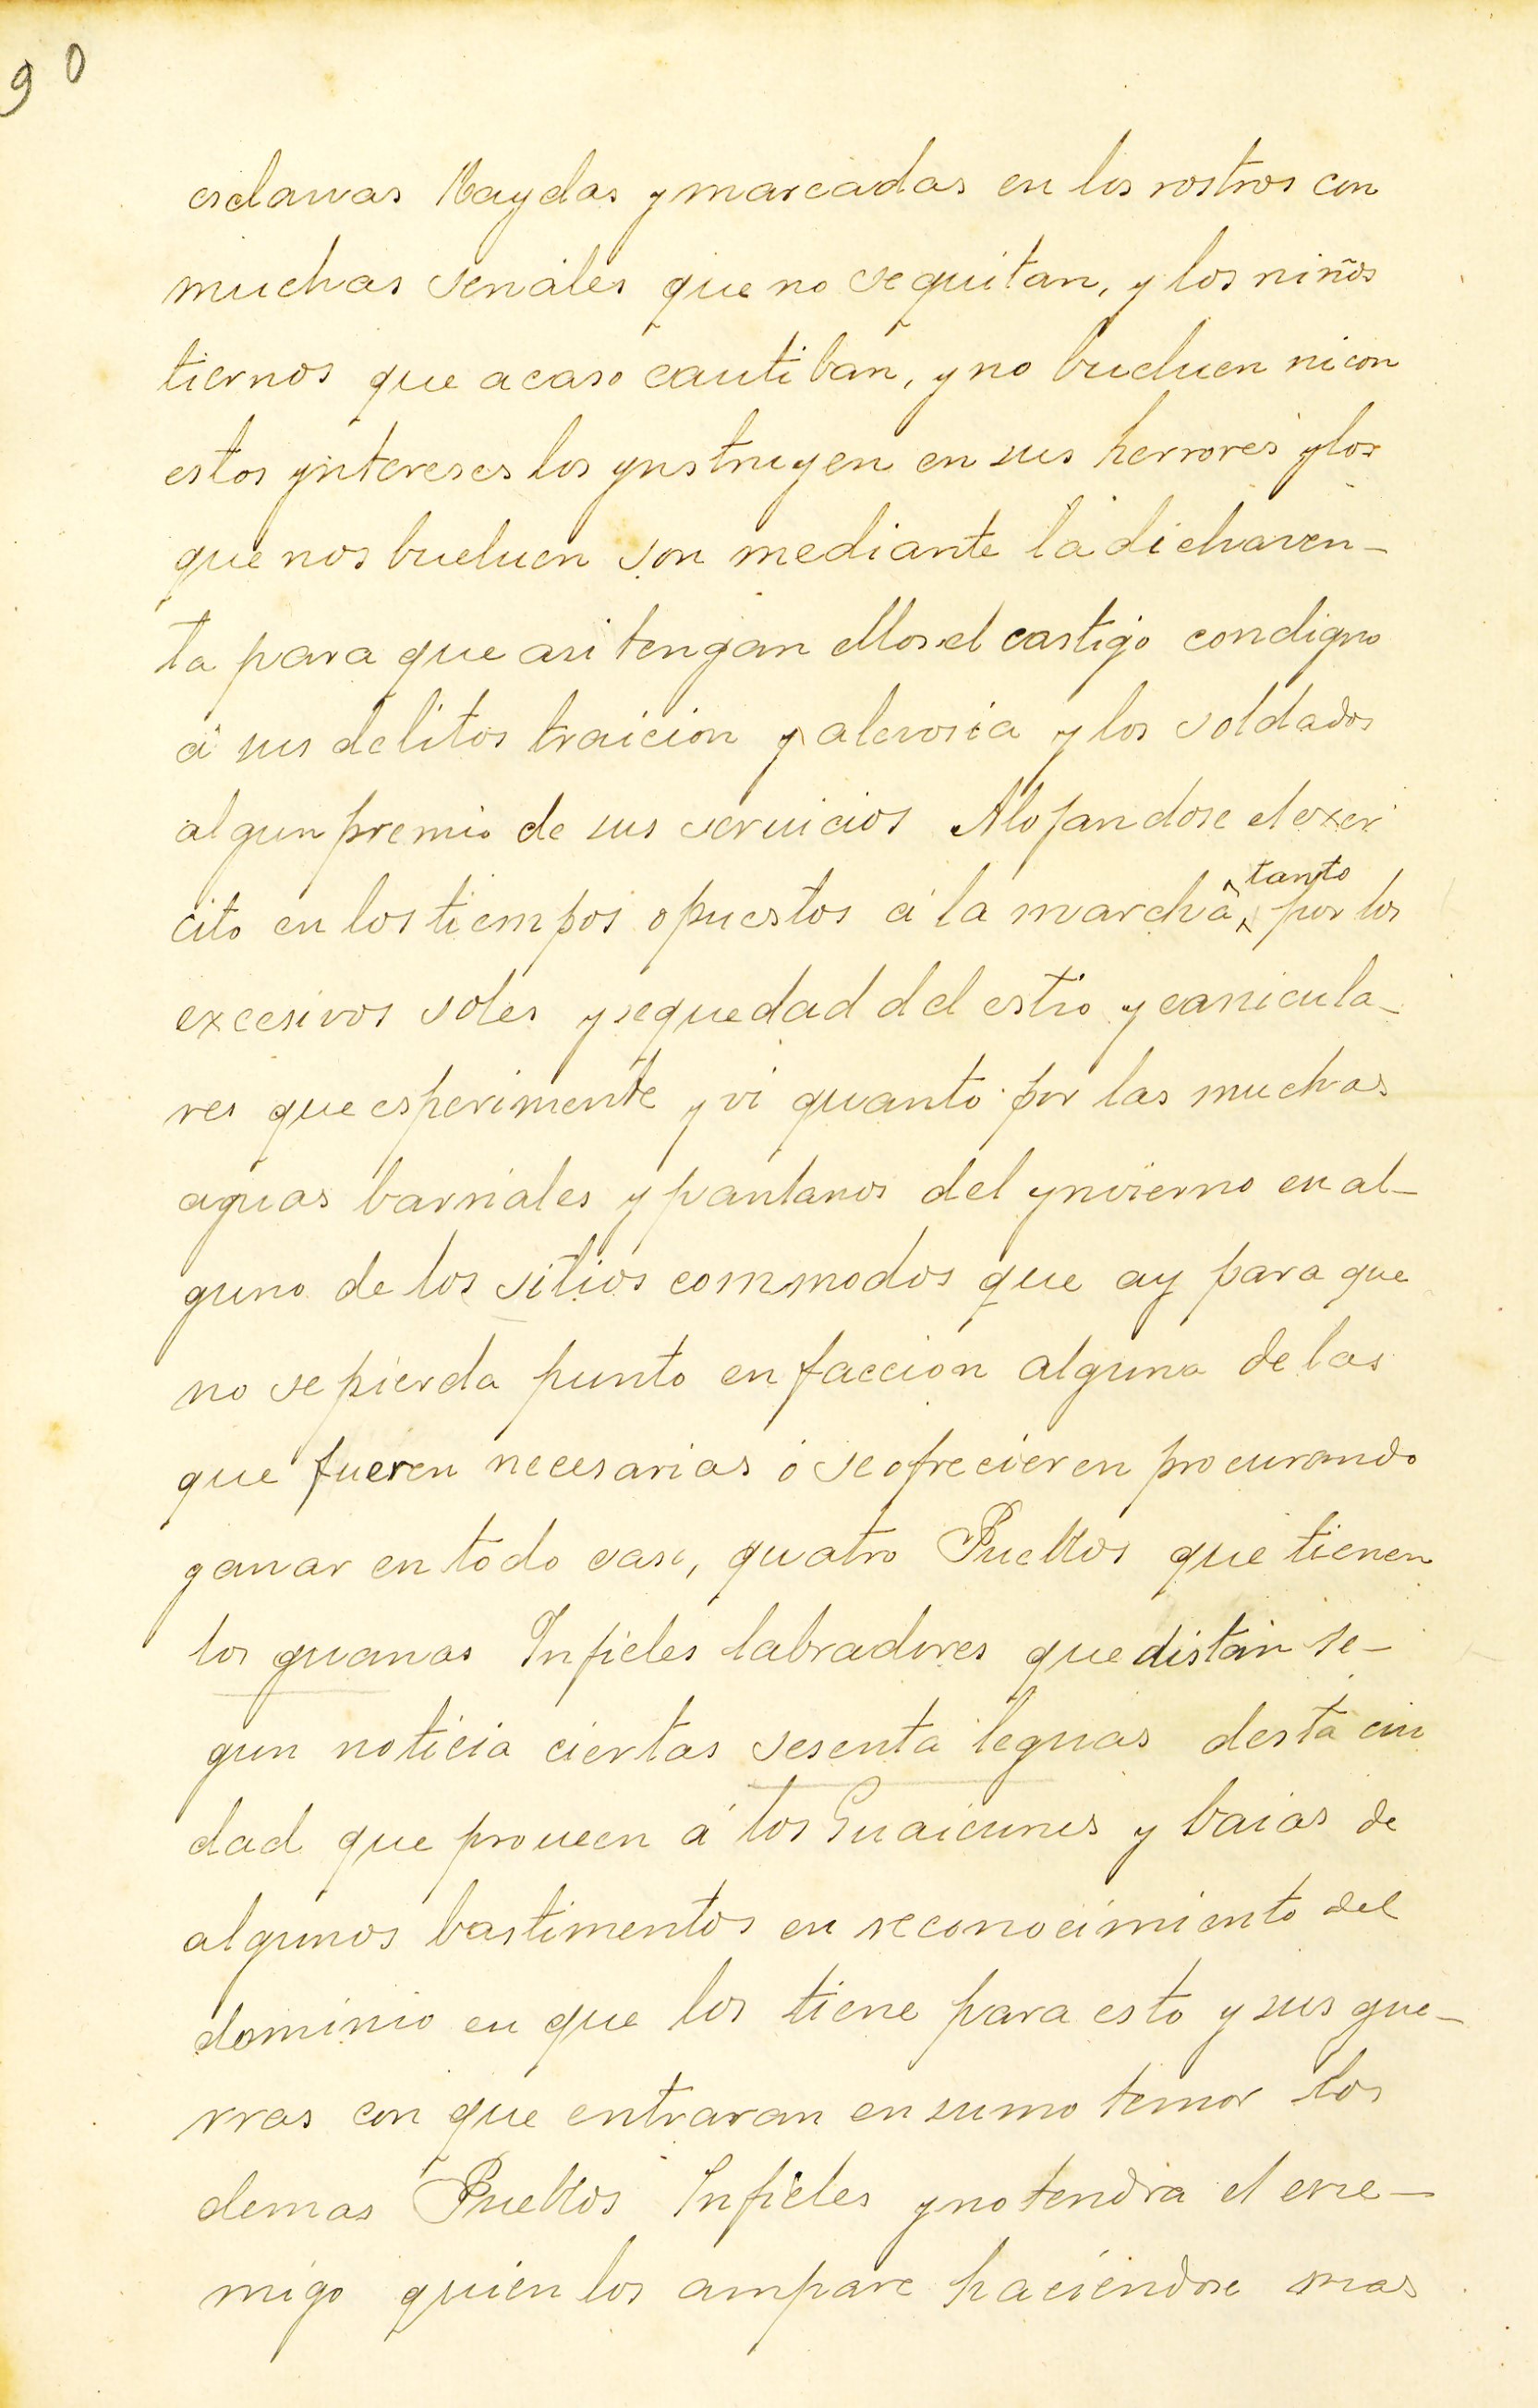 90
esclauas Raydas y marcadas en los rostros con
muchas senáles que no se quitan, y los niños
tiernos que acaso cautiban, y no bueluen ni con
estos yntereses los ynstruyen en sus herrores y los
que nos bueluen son mediante la dicha ven-
ta para que asi tengan ellos el castigo condigno
á sus delitos traicion y alevosia y los soldados
algun premio de sus seruicios Alojandose el exer
cito en los tiempos opuestos á la marcha tanto por los
excesivos soles y sequedad del estio y canicula-
res que esperimente y vi quanto por las muchas
aguas barriales y pantanos del ynvierno en al-
guno de los sitios commodos que ay para que
no se pierda punto en faccion alguna de las
que fueren necesarias ó se ofrecieren procurando
ganar en todo caso, quatro Pueblos que tienen
los guanas Infieles labradores que distan se-
gun noticia ciertas sesenta leguas desta ciu
dad que proueen á los Guaicurus y baias de
algunos bastimentos en reconocimiento del
dominio en que los tiene para esto y sus gue-
rras con que entraran en sumo temor los
demas Pueblos Infieles y no tendra el ene-
migo quien los ampare haciendose mas